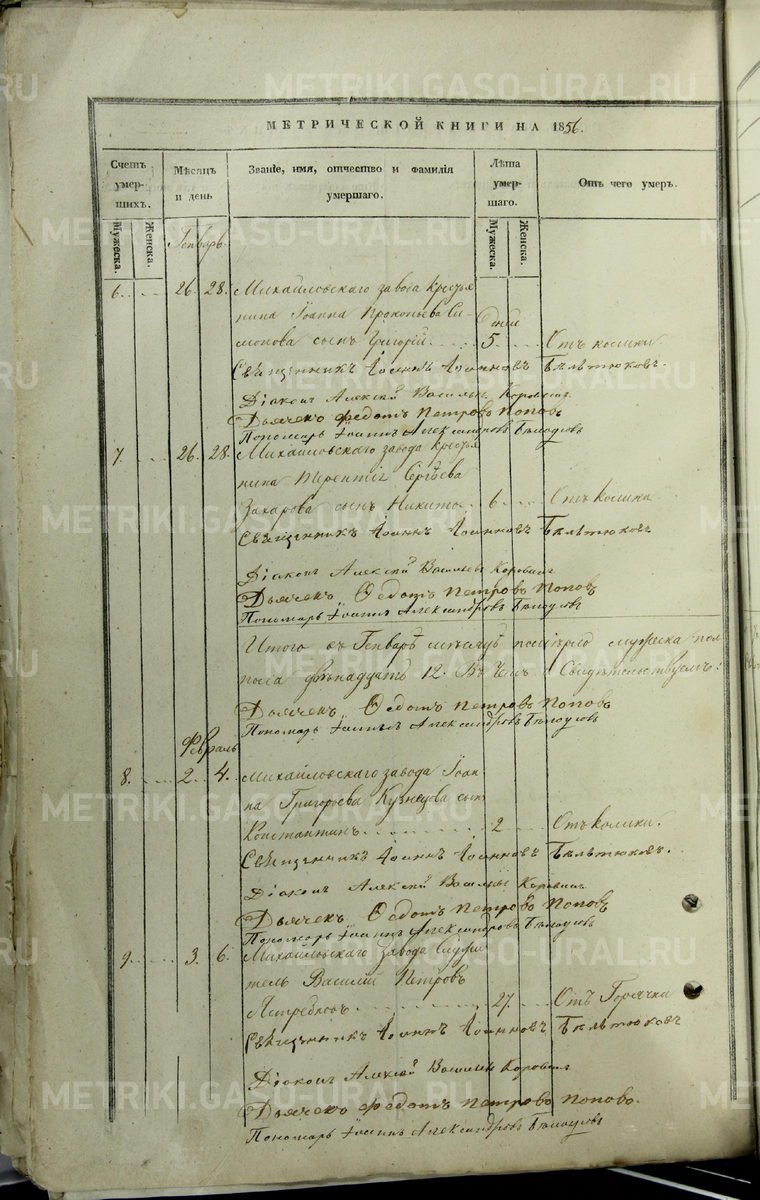 МЕТРИЧЕСКОЙ КНИГИ НА 1856.
Счетъ умер-шихъ. Мѣсяцъ и день Званіе, имя, отчество и фамилія умершаго. Лѣта умер-шаго. Отъ чего умеръ.
Мужеска. Женска. Мужеска. Женска.
Генварь.
6. 26. 28. Михайловскаго завода крестья
нина Іоанна Прокопьева Си
монова сынъ Григорій. дней 5. Отъ колики.
Священникъ Іоаннъ Іоанновъ Бѣлтюковъ.
Діаконъ Алексій Васильевъ Коровинъ
Дьячекъ Федотъ Петровъ Поповъ
Пономарь Іоаннъ Александровъ
7. 26. 28. Михайловскаго завода крестья
нина Терентія Сергѣева
Захарова сынъ Никита. 6. Отъ колики
Священникъ Іоаннъ Іоанновъ Бѣлтюковъ
Діаконъ Алексій Васильевъ Коровинъ
Дьячекъ Ѳедотъ Петровъ Поповъ
Пономарь Іоаннъ Александровъ
Итого въ Генварѣ мѣсяцѣ мужеска пол
пола двѣнадцать 12. Въ чемъ и Свидѣтельствуемъ:
Дьячекъ Ѳедотъ Петровъ Поповъ
Пономарь Іоаннъ Александровъ
Февраль
8. 2. 4. Михайловскаго завода Іоан
на Григорьева Кузнецова сынъ
Константинъ. 2. Отъ колики.
Священникъ Іоаннъ Іоанновъ Бѣлтюковъ.
Діаконъ Алексій Васильевъ Коровинъ
Дьячекъ Ѳедотъ Петровъ Поповъ
Пономарь Іоаннъ Александровъ
9. 3. 6. Михайловскаго завода Служи
тель Василій Петровъ
Ястребковъ. 27. Отъ Горячки
Священникъ Іоаннъ Іоанновъ Бѣлтюковъ
Діаконъ Алексій Васильевъ Коровинъ
Дьячекъ Федотъ Петровъ Поповъ.
Пономарь Іоаннъ Александровъ
METRIKI.GASO-URAL.RU